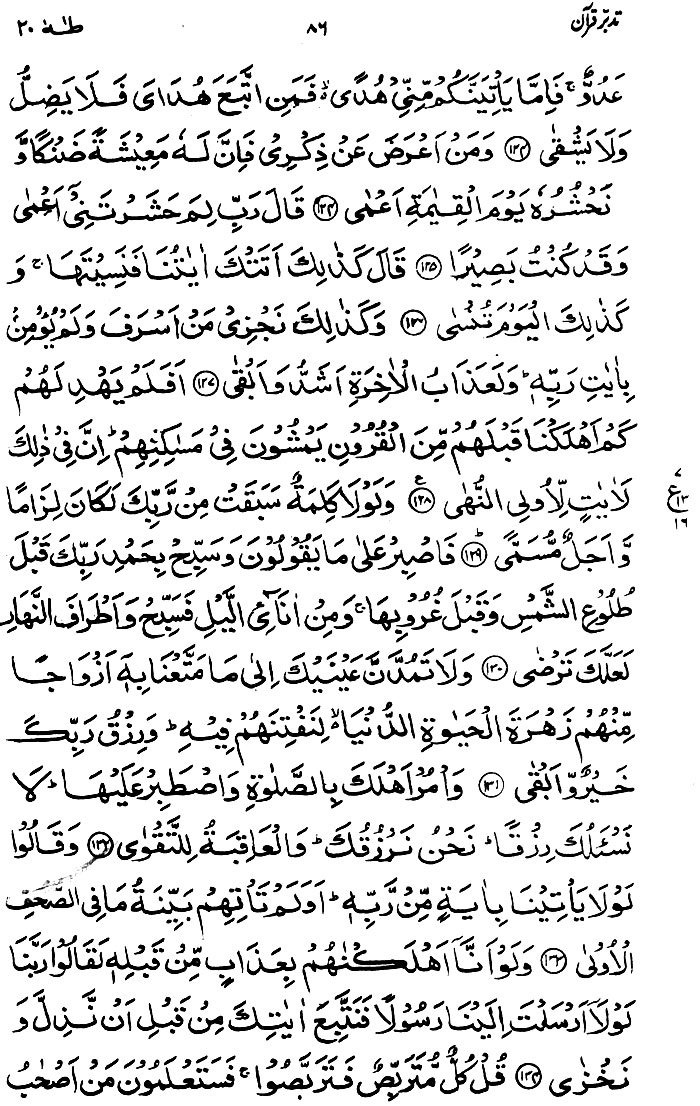 تدبّرِ قرآن ۸۶ طٰهٰ ۲۰
عَدُوٌّ ۚ فَاِمَّا يَاْتِيَنَّكُمْ مِّنِّيْ هُدًى ۙ فَمَنِ اتَّبَعَ هُدَايَ فَلَا يَضِلُّ
وَلَا يَشْقٰى ۝۱۲۳ وَمَنْ اَعْرَضَ عَنْ ذِكْرِيْ فَاِنَّ لَهٗ مَعِيْشَةً ضَنْكًا وَّ
نَحْشُرُهٗ يَوْمَ الْقِيٰمَةِ اَعْمٰى ۝۱۲۴ قَالَ رَبِّ لِمَ حَشَرْتَنِيْٓ اَعْمٰى
وَقَدْ كُنْتُ بَصِيْرًا ۝۱۲۵ قَالَ كَذٰلِكَ اَتَتْكَ اٰيٰتُنَا فَنَسِيْتَهَا ۚ وَ
كَذٰلِكَ الْيَوْمَ تُنْسٰى ۝۱۲۶ وَكَذٰلِكَ نَجْزِيْ مَنْ اَسْرَفَ وَلَمْ يُؤْمِنْۢ
بِاٰيٰتِ رَبِّهٖ ؕ وَلَعَذَابُ الْاٰخِرَةِ اَشَدُّ وَاَبْقٰى ۝۱۲۷ اَفَلَمْ يَهْدِ لَهُمْ
كَمْ اَهْلَكْنَا قَبْلَهُمْ مِّنَ الْقُرُوْنِ يَمْشُوْنَ فِيْ مَسٰكِنِهِمْ ؕ اِنَّ فِيْ ذٰلِكَ
لَاٰيٰتٍ لِّاُولِي النُّهٰى ۝۱۲۸ ع وَلَوْلَا كَلِمَةٌ سَبَقَتْ مِنْ رَّبِّكَ لَكَانَ لِزَامًا
۷ ع ۱۳ ۱۶
وَّاَجَلٌ مُّسَمًّى ۝۱۲۹ؕ فَاصْبِرْ عَلٰى مَا يَقُوْلُوْنَ وَسَبِّحْ بِحَمْدِ رَبِّكَ قَبْلَ
طُلُوْعِ الشَّمْسِ وَقَبْلَ غُرُوْبِهَا ۚ وَمِنْ اٰنَآئِ الَّيْلِ فَسَبِّحْ وَاَطْرَافَ النَّهَارِ
لَعَلَّكَ تَرْضٰى ۝۱۳۰ وَلَا تَمُدَّنَّ عَيْنَيْكَ اِلٰى مَا مَتَّعْنَا بِهٖٓ اَزْوَاجًا
مِّنْهُمْ زَهْرَةَ الْحَيٰوةِ الدُّنْيَا ۙ لِنَفْتِنَهُمْ فِيْهِ ؕ وَرِزْقُ رَبِّكَ
خَيْرٌ وَّاَبْقٰى ۝۱۳۱ وَاْمُرْ اَهْلَكَ بِالصَّلٰوةِ وَاصْطَبِرْ عَلَيْهَا ؕ لَا
نَسْـَٔلُكَ رِزْقًا ؕ نَحْنُ نَرْزُقُكَ ؕ وَالْعَاقِبَةُ لِلتَّقْوٰى ۝۱۳۲ وَقَالُوْا
لَوْلَا يَاْتِيْنَا بِاٰيَةٍ مِّنْ رَّبِّهٖ ؕ اَوَلَمْ تَاْتِهِمْ بَيِّنَةُ مَا فِي الصُّحُفِ
الْاُوْلٰى ۝۱۳۳ وَلَوْ اَنَّآ اَهْلَكْنٰهُمْ بِعَذَابٍ مِّنْ قَبْلِهٖ لَقَالُوْا رَبَّنَا
لَوْلَآ اَرْسَلْتَ اِلَيْنَا رَسُوْلًا فَنَتَّبِعَ اٰيٰتِكَ مِنْ قَبْلِ اَنْ نَّذِلَّ وَ
نَخْزٰى ۝۱۳۴ قُلْ كُلٌّ مُّتَرَبِّصٌ فَتَرَبَّصُوْا ۚ فَسَتَعْلَمُوْنَ مَنْ اَصْحٰبُ